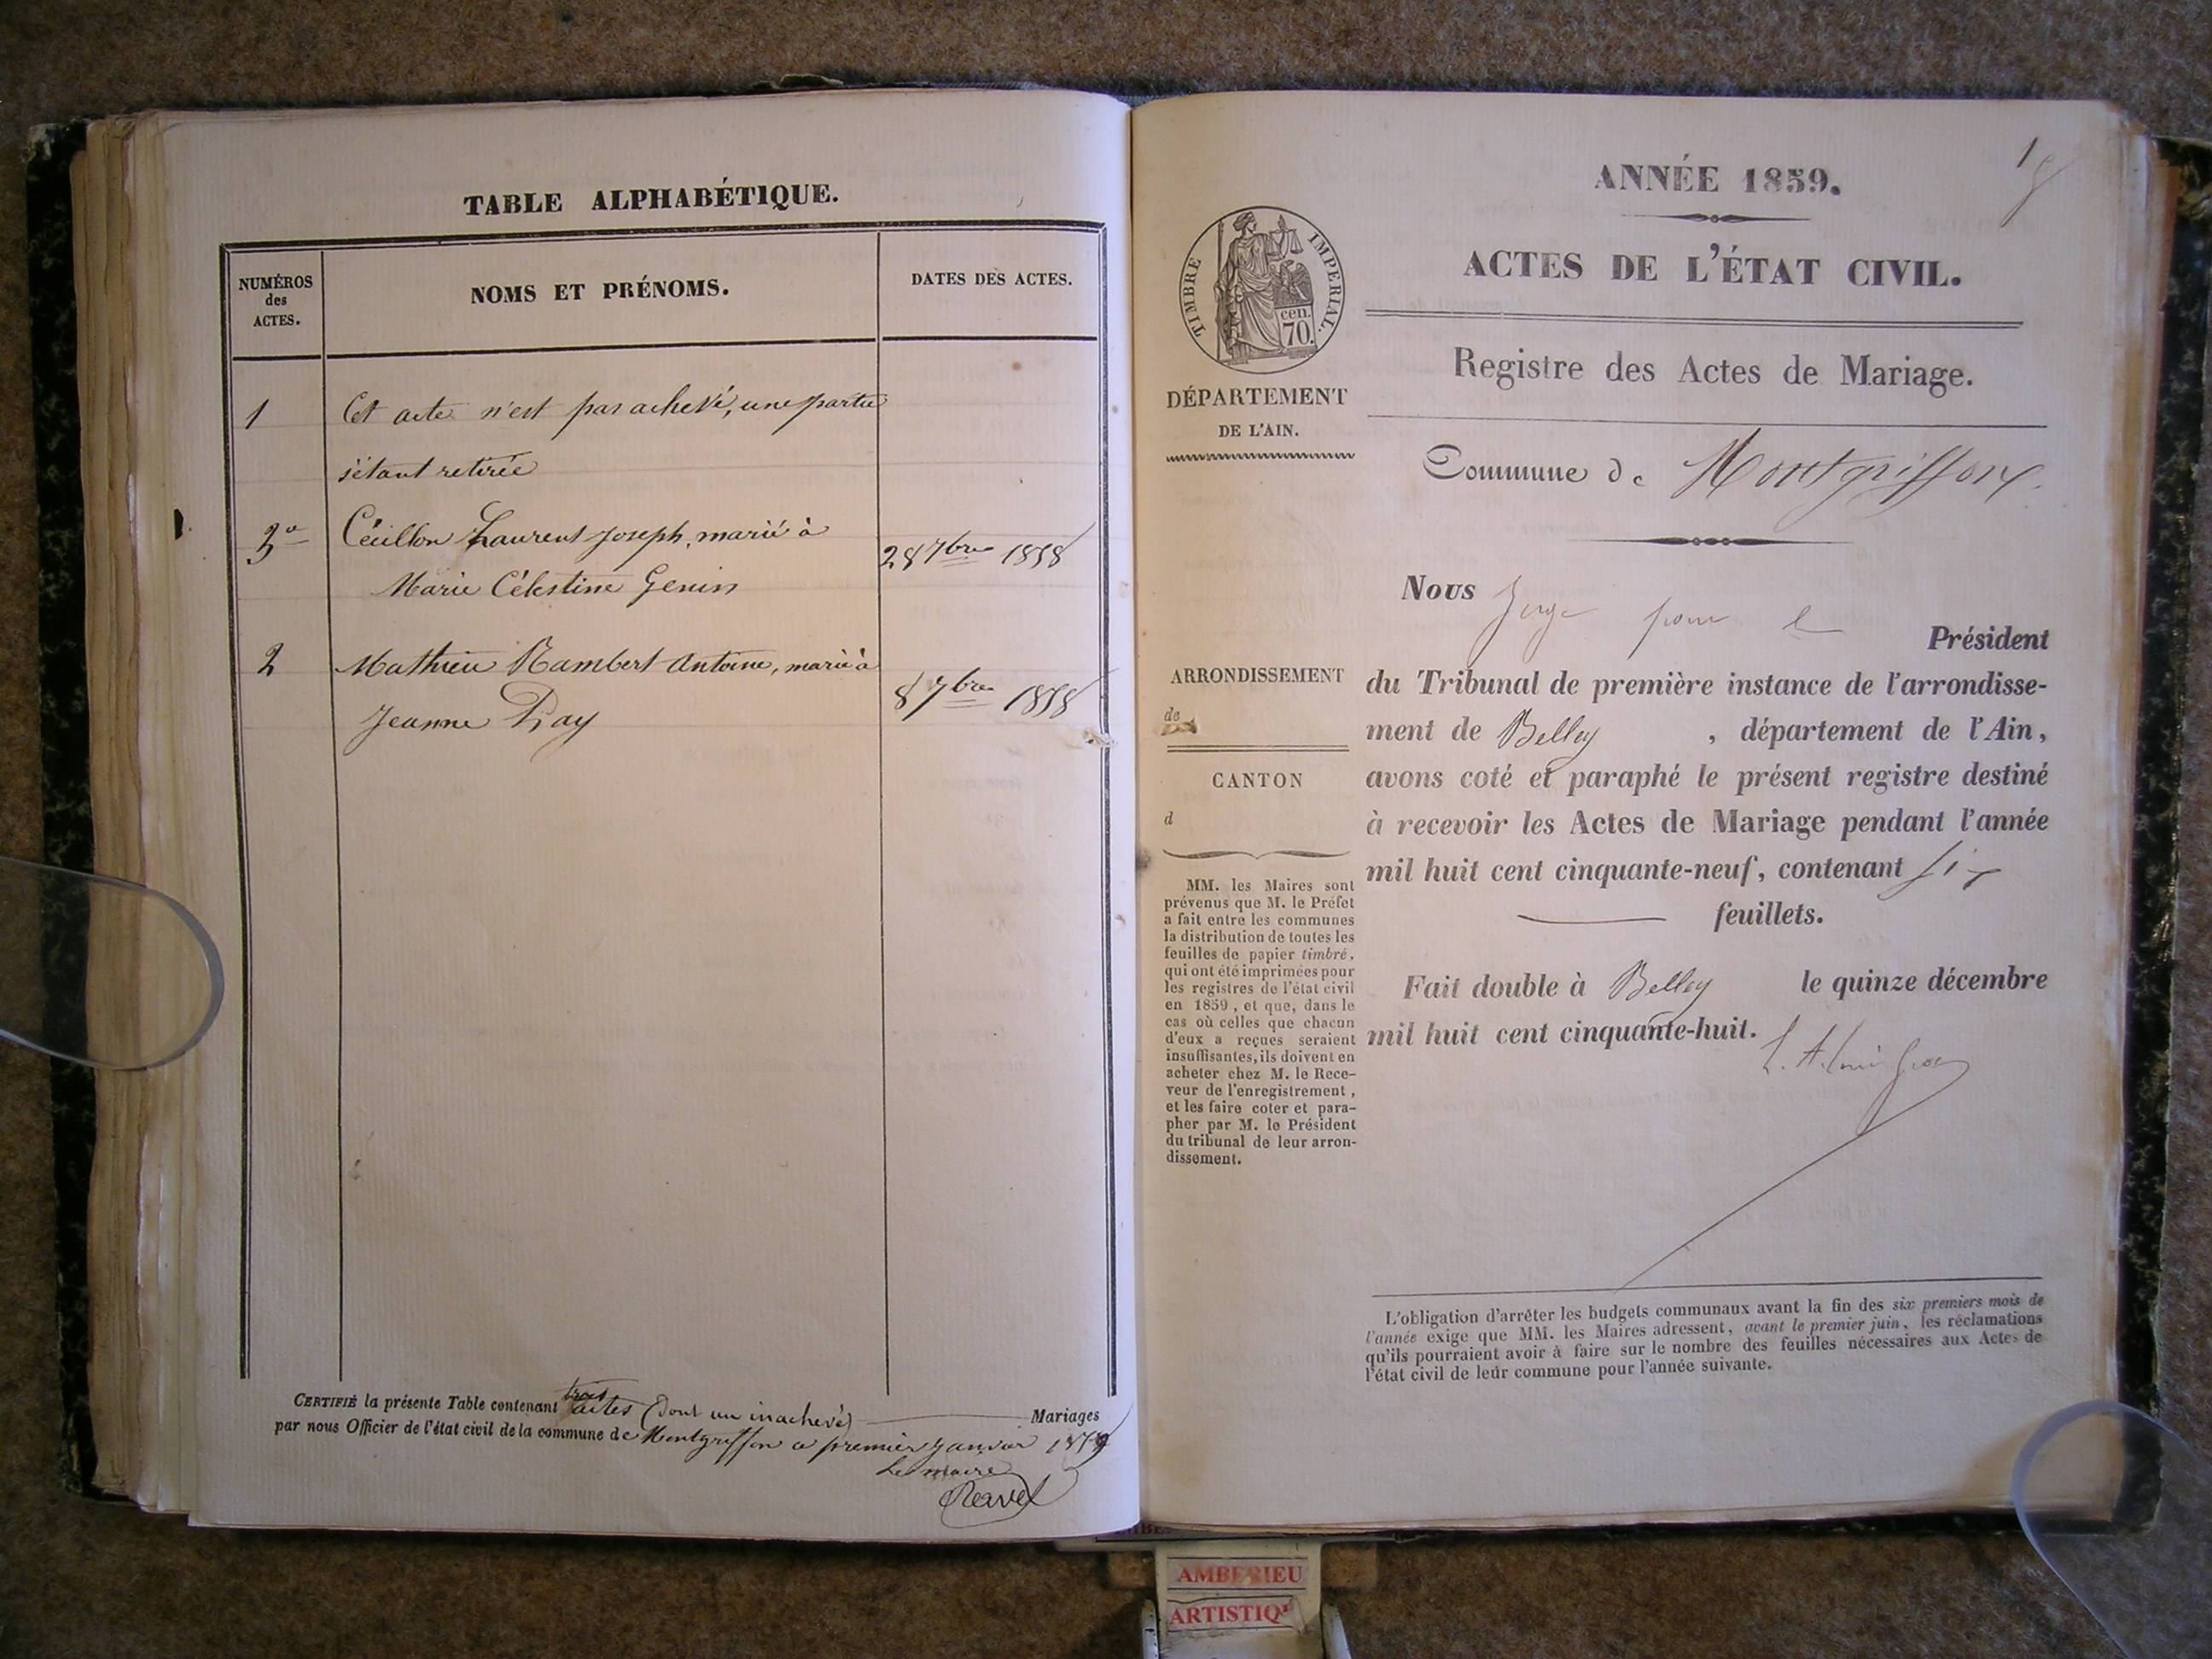 TABLE ALPHABÉTIQUE.
NUMÉROS
des
ACTES.
NOMS ET PRÉNOMS.
DATES DES ACTES.
1
Cet acte n'est pas achevé, une partie
s'étant retirée
3
Laurent Joseph, marié à
28 7bre 1858
Marie Célestine Genin
2
Mathieu Rambert Antoine, marié à
8 7bre 1858
Jeanne
CERTIFIÉ la présente Table contenant trois actes (dont un inachevé) Mariages
par nous Officier de l'état civil de la commune de Montgriffon ce premier janvier
Le maire
1
ANNÉE 1859.
TIMBRE IMPERIAL.
cen.
70.
ACTES DE L'ÉTAT CIVIL.
Registre des Actes de Mariage.
DÉPARTEMENT
DE L'AIN.
Commune de Montgriffon.
Nous Juge pour le Président
ARRONDISSEMENT
de
CANTON
d
du Tribunal de première instance de l'arrondisse-
ment de Belley , département de l'Ain,
avons coté et paraphé le présent registre destiné
à recevoir les Actes de Mariage pendant l'année
mil huit cent cinquante-neuf, contenant six
feuillets.
Fait double à Belley le quinze décembre
mil huit cent cinquante-huit.
MM. les Maires sont
prévenus que M. le Préfet
a fait entre les communes
la distribution de toutes les
feuilles de papier timbré,
qui ont été imprimées pour
les registres de l'état civil
en 1859, et que, dans le
cas où celles que chacun
d'eux a reçues seraient
insuffisantes, ils doivent en
acheter chez M. le Rece-
veur de l'enregistrement,
et les faire coter et para-
pher par M. le Président
du tribunal de leur arron-
dissement.
L'obligation d'arrêter les budgets communaux avant la fin des six premiers mois de
l'année exige que MM. les Maires adressent, avant le premier juin, les réclamations
qu'ils pourraient avoir à faire sur le nombre des feuilles nécessaires aux Actes de
l'état civil de leur commune pour l'année suivante.
AMBERIEU
ARTISTIQ